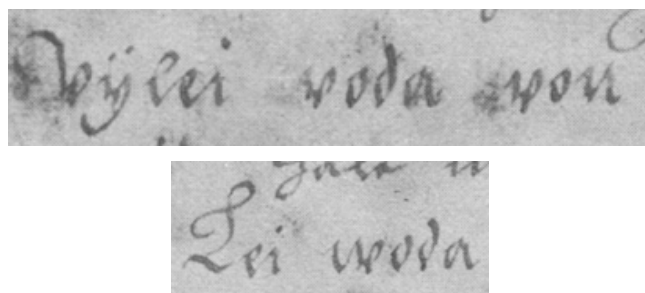 wÿlei voda won
Lei woda